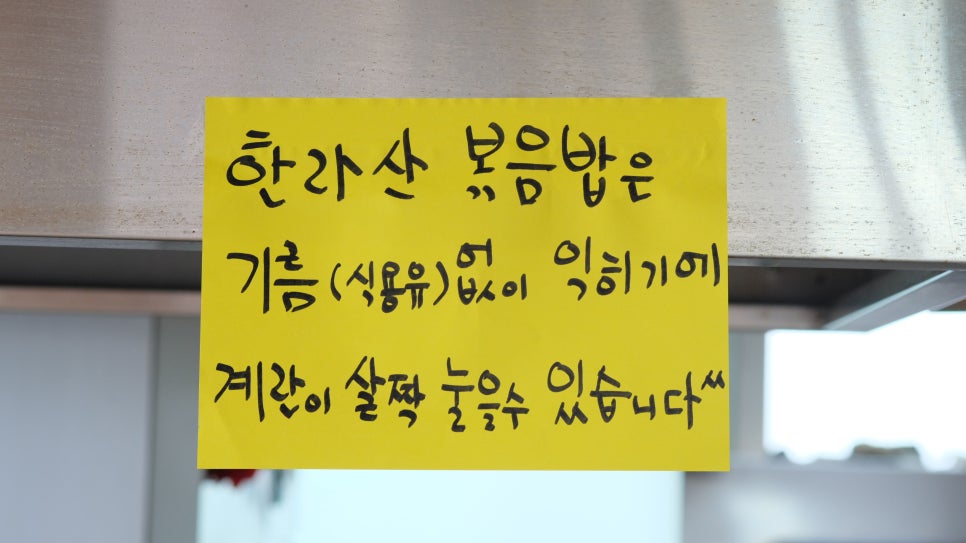 한라산 볶음밥은
기름(식용유)없이 익히기에
계란이 살짝 눌을수 있습니다^^